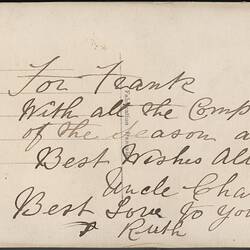 For Frank
With all the Comp
of the Season a
Best Wishes All
Uncle Cha
Best Love to Yo
Ruth